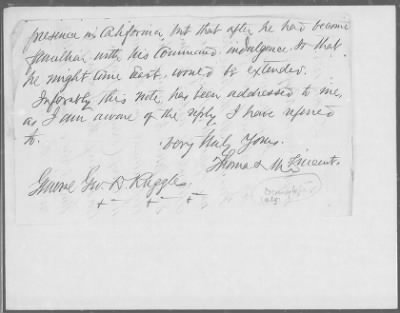 presence in California, but that after he had become
familiar with his Command, indulgence, so that
he might come East, would be extended.
Inferably this note has been addressed to me,
as I am aware of the reply I have referred
to.
Very truly Yours,
Thomas M Vincent.
General Geo. D. Ruggles.